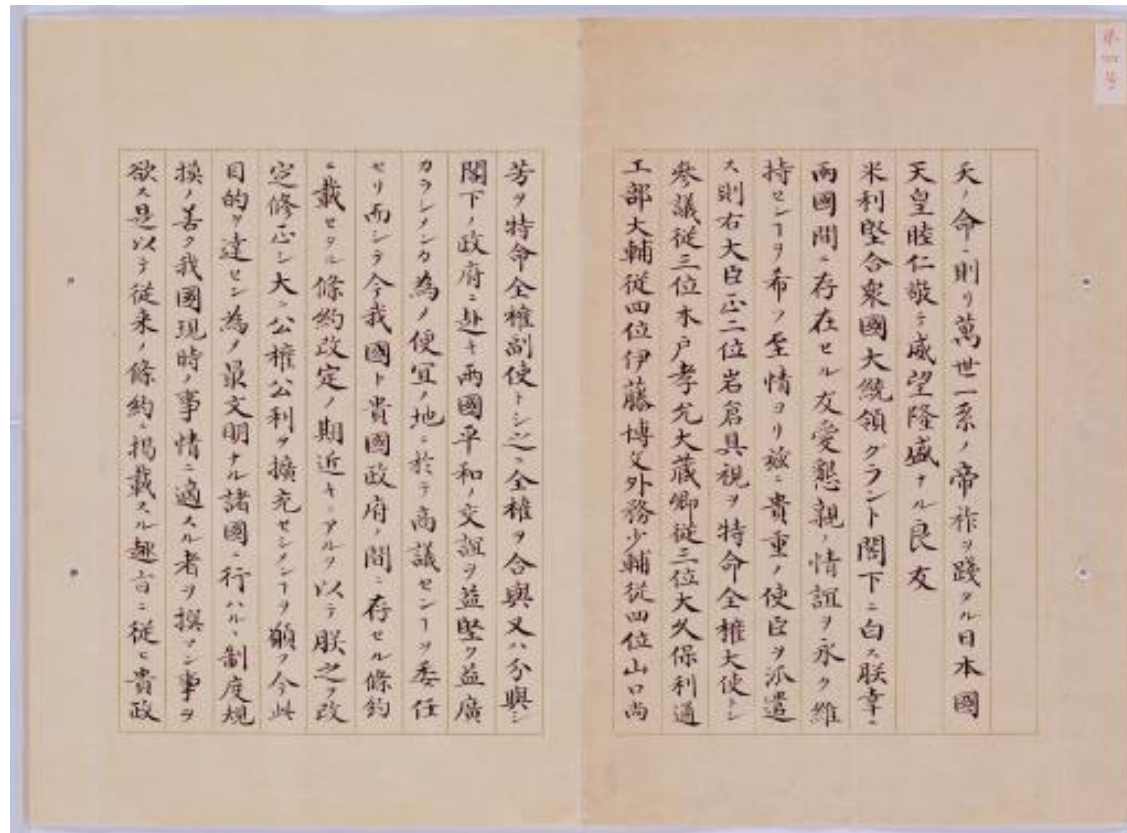 第四号
天ノ命ニ則リ萬世一系ノ帝祚ヲ踐タル日本國
天皇睦仁敬テ威望隆盛ナル良友
米利堅合衆國大統領グラント閣下ニ白ス朕幸ニ
兩國間ニ存在セル友愛懇親ノ情誼ヲ永ク維
持センヿヲ希フノ至情ヨリ玆ニ貴重ノ使臣ヲ派遣
ス則右大臣正二位岩倉具視ヲ特命全権大使トシ
參議従三位木戸孝允大藏卿従三位大久保利通
工部大輔従四位伊藤博文外務少輔従四位山口尚
芳ヲ特命全権副使トシ之ニ全権ヲ合與又ハ分與シ
閣下ノ政府ニ赴キ兩國平和ノ交誼ヲ益堅ク益廣
カラシメンカ為ノ便宜ノ地ニ於テ商議センヿヲ委任
セリ而シテ今我國ト貴國政府ノ間ニ存セル條約
ニ載セタル條約改定ノ期近キニアルヲ以テ朕之ヲ改
定修正シ大ニ公権公利ヲ擴充セシメンヿヲ願フ今此
目的ヲ達セン為ノ最文明ナル諸國ニ行ハルヽ制度規
摸ノ善ク我國現時ノ事情ニ適スル者ヲ撰マン事ヲ
欲ス是以テ従来ノ條約ニ掲載スル趣旨ニ従ヒ貴政